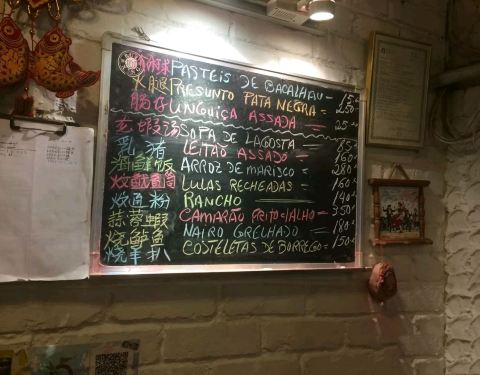 PASTEIS DE BACALHAU - 15-
火腿 PRESUNTO PATA NEGRA = 250-
腸仔 LINGUIÇA ASSADA = 25-
SOPA DE LAGOSTA = 85-
乳猪 LEITÃO ASSADO = 160-
ARROZ DE MARISCO = 280-
LULAS RECHEADAS = 160-
RANCHO 140-
蒜蓉蝦 CAMARÃO FRITO C/ALHO = 350-
烧鱸鱼 GRELHADO = 180-
烧羊扒 COSTELETAS DE BORREGO = 150-